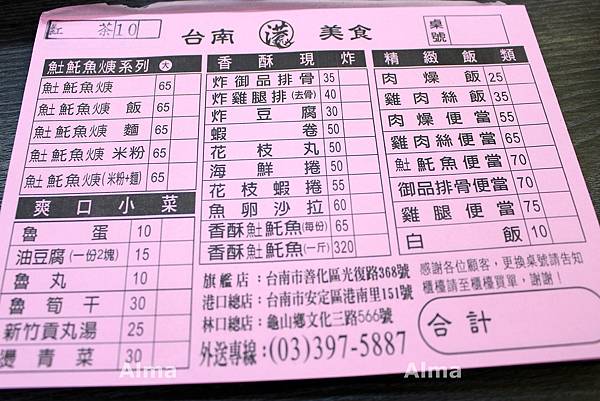 紅 茶 10
台南 港 美食
桌號
𩵚魠魚焿系列 大
𩵚魠魚焿 65
𩵚魠魚焿 飯 65
𩵚魠魚焿 麵 65
𩵚魠魚焿 米粉 65
𩵚魠魚焿(米粉+麵) 65
爽口小菜
魯蛋 10
油豆腐(一份2塊) 15
魯丸 10
魯筍干 30
新竹貢丸湯 25
燙青菜 30
香酥現炸
炸御品排骨 35
炸雞腿排(去骨) 40
炸豆腐 30
蝦卷 50
花枝丸 50
海鮮捲 50
花枝蝦捲 55
魚卵沙拉 60
香酥𩵚魠魚(每份) 65
香酥𩵚魠魚(一斤) 320
精緻飯類
肉燥飯 25
雞肉絲飯 35
肉燥便當 55
雞肉絲便當 65
𩵚魠魚便當 70
御品排骨便當 70
雞腿便當 75
白飯 10
旗艦店：台南市善化區光復路368號
港口總店：台南市安定區港南里151號
林口總店：龜山鄉文化三路566號
外送專線：(03)397-5887
感謝各位顧客，更換桌號請告知
櫃檯請至櫃檯買單，謝謝！
合計
Alma
Alma